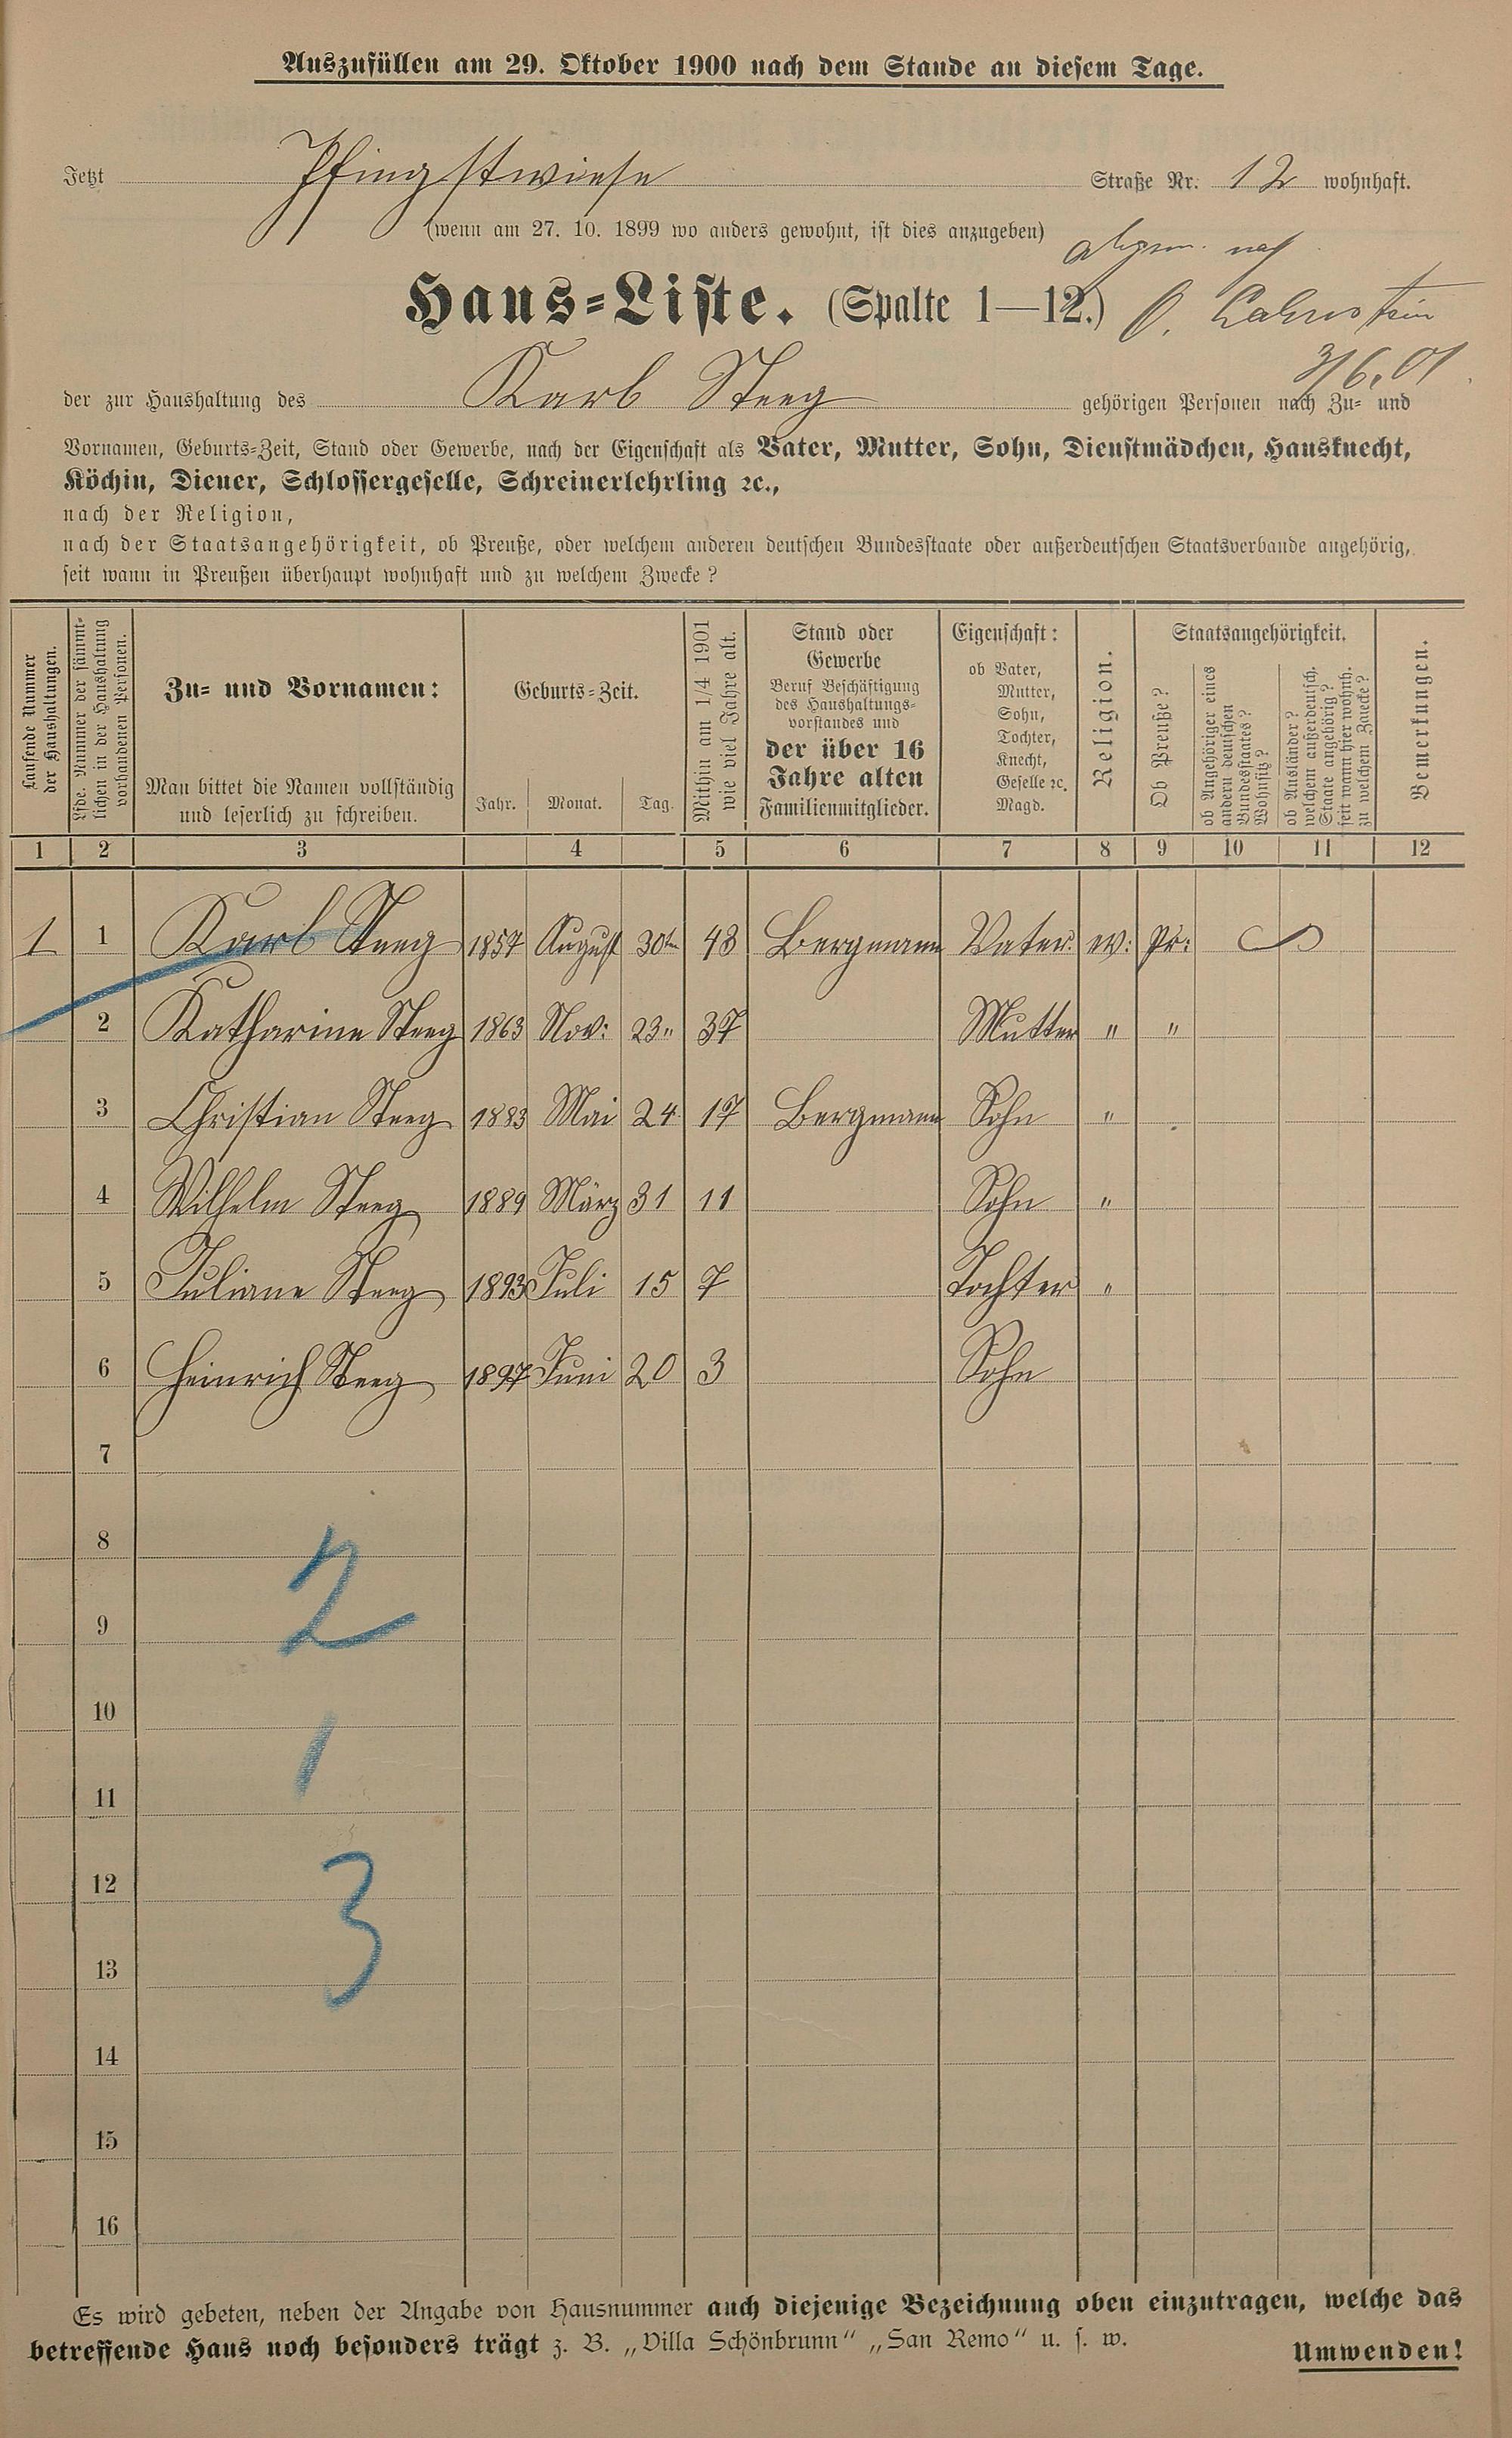 Auszufüllen am 29. Oktober 1900 nach dem Stande an diesem Tage.
Jetzt Pfingstwiese Straße Nr. 12 wohnhaft.
(wenn am 27. 10. 1899 wo anders gewohnt, ist dies anzugeben)
nach
Haus-Liste. (Spalte 1—12.) O. Lahnstein
3/6.01
der zur Haushaltung des Karl Steeg gehörigen Personen nach Zu- und
Vornamen, Geburts-Zeit, Stand oder Gewerbe, nach der Eigenschaft als Vater, Mutter, Sohn, Dienstmädchen, Hausknecht,
Köchin, Diener, Schlossergeselle, Schreinerlehrling ꝛc.,
nach der Religion,
nach der Staatsangehörigkeit, ob Preuße, oder welchem anderen deutschen Bundesstaate oder außerdeutschen Staatsverbande angehörig,
seit wann in Preußen überhaupt wohnhaft und zu welchem Zwecke?
Laufende Nummer
der Haushaltungen.
Lfde. Nummer der sämmt-
lichen in der Haushaltung
vorhandenen Personen.
Zu- und Vornamen:
Man bittet die Namen vollständig
und leserlich zu schreiben.
Geburts-Zeit.
Jahr. Monat. Tag.
Mithin am 1/4 1901
wie viel Jahre alt.
Stand oder
Gewerbe
Beruf Beschäftigung
des Haushaltungs-
vorstandes und
der über 16
Jahre alten
Familienmitglieder.
Eigenschaft:
ob Vater,
Mutter,
Sohn,
Tochter,
Knecht,
Geselle ꝛc.
Magd.
Religion.
Staatsangehörigkeit.
Ob Preuße?
ob Angehöriger eines
andern deutschen
Bundesstaates?
Wohnsitz?
ob Ausländer?
welchem außerdeutsch.
Staate angehörig?
seit wann hier wohnh.
zu welchem Zwecke?
Bemerkungen.
1 2 3 4 5 6 7 8 9 10 11 12
1 1 Karl Steeg 1857 August 30ten 43 Bergmann Vater. ev: Pr:
2 Katharine Steeg 1863 Nov: 23" 37 Mutter " "
3 Christian Steeg 1883 Mai 24 17 Bergmann Sohn "
4 Wilhelm Steeg 1889 März 31 11 Sohn "
5 Juliane Steeg 1893 Juli 15 7 Tochter "
6 Heinrich Steeg 1897 Juni 20 3 Sohn
7
8
2
9
10
1
11
12
3
13
14
15
16
Es wird gebeten, neben der Angabe von Hausnummer auch diejenige Bezeichnung oben einzutragen, welche das
betreffende Haus noch besonders trägt z. B. „Villa Schönbrunn“ „San Remo“ u. s. w.
Umwenden!